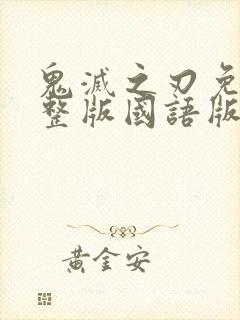 鬼滅之刃免
整版國語版
黃金安